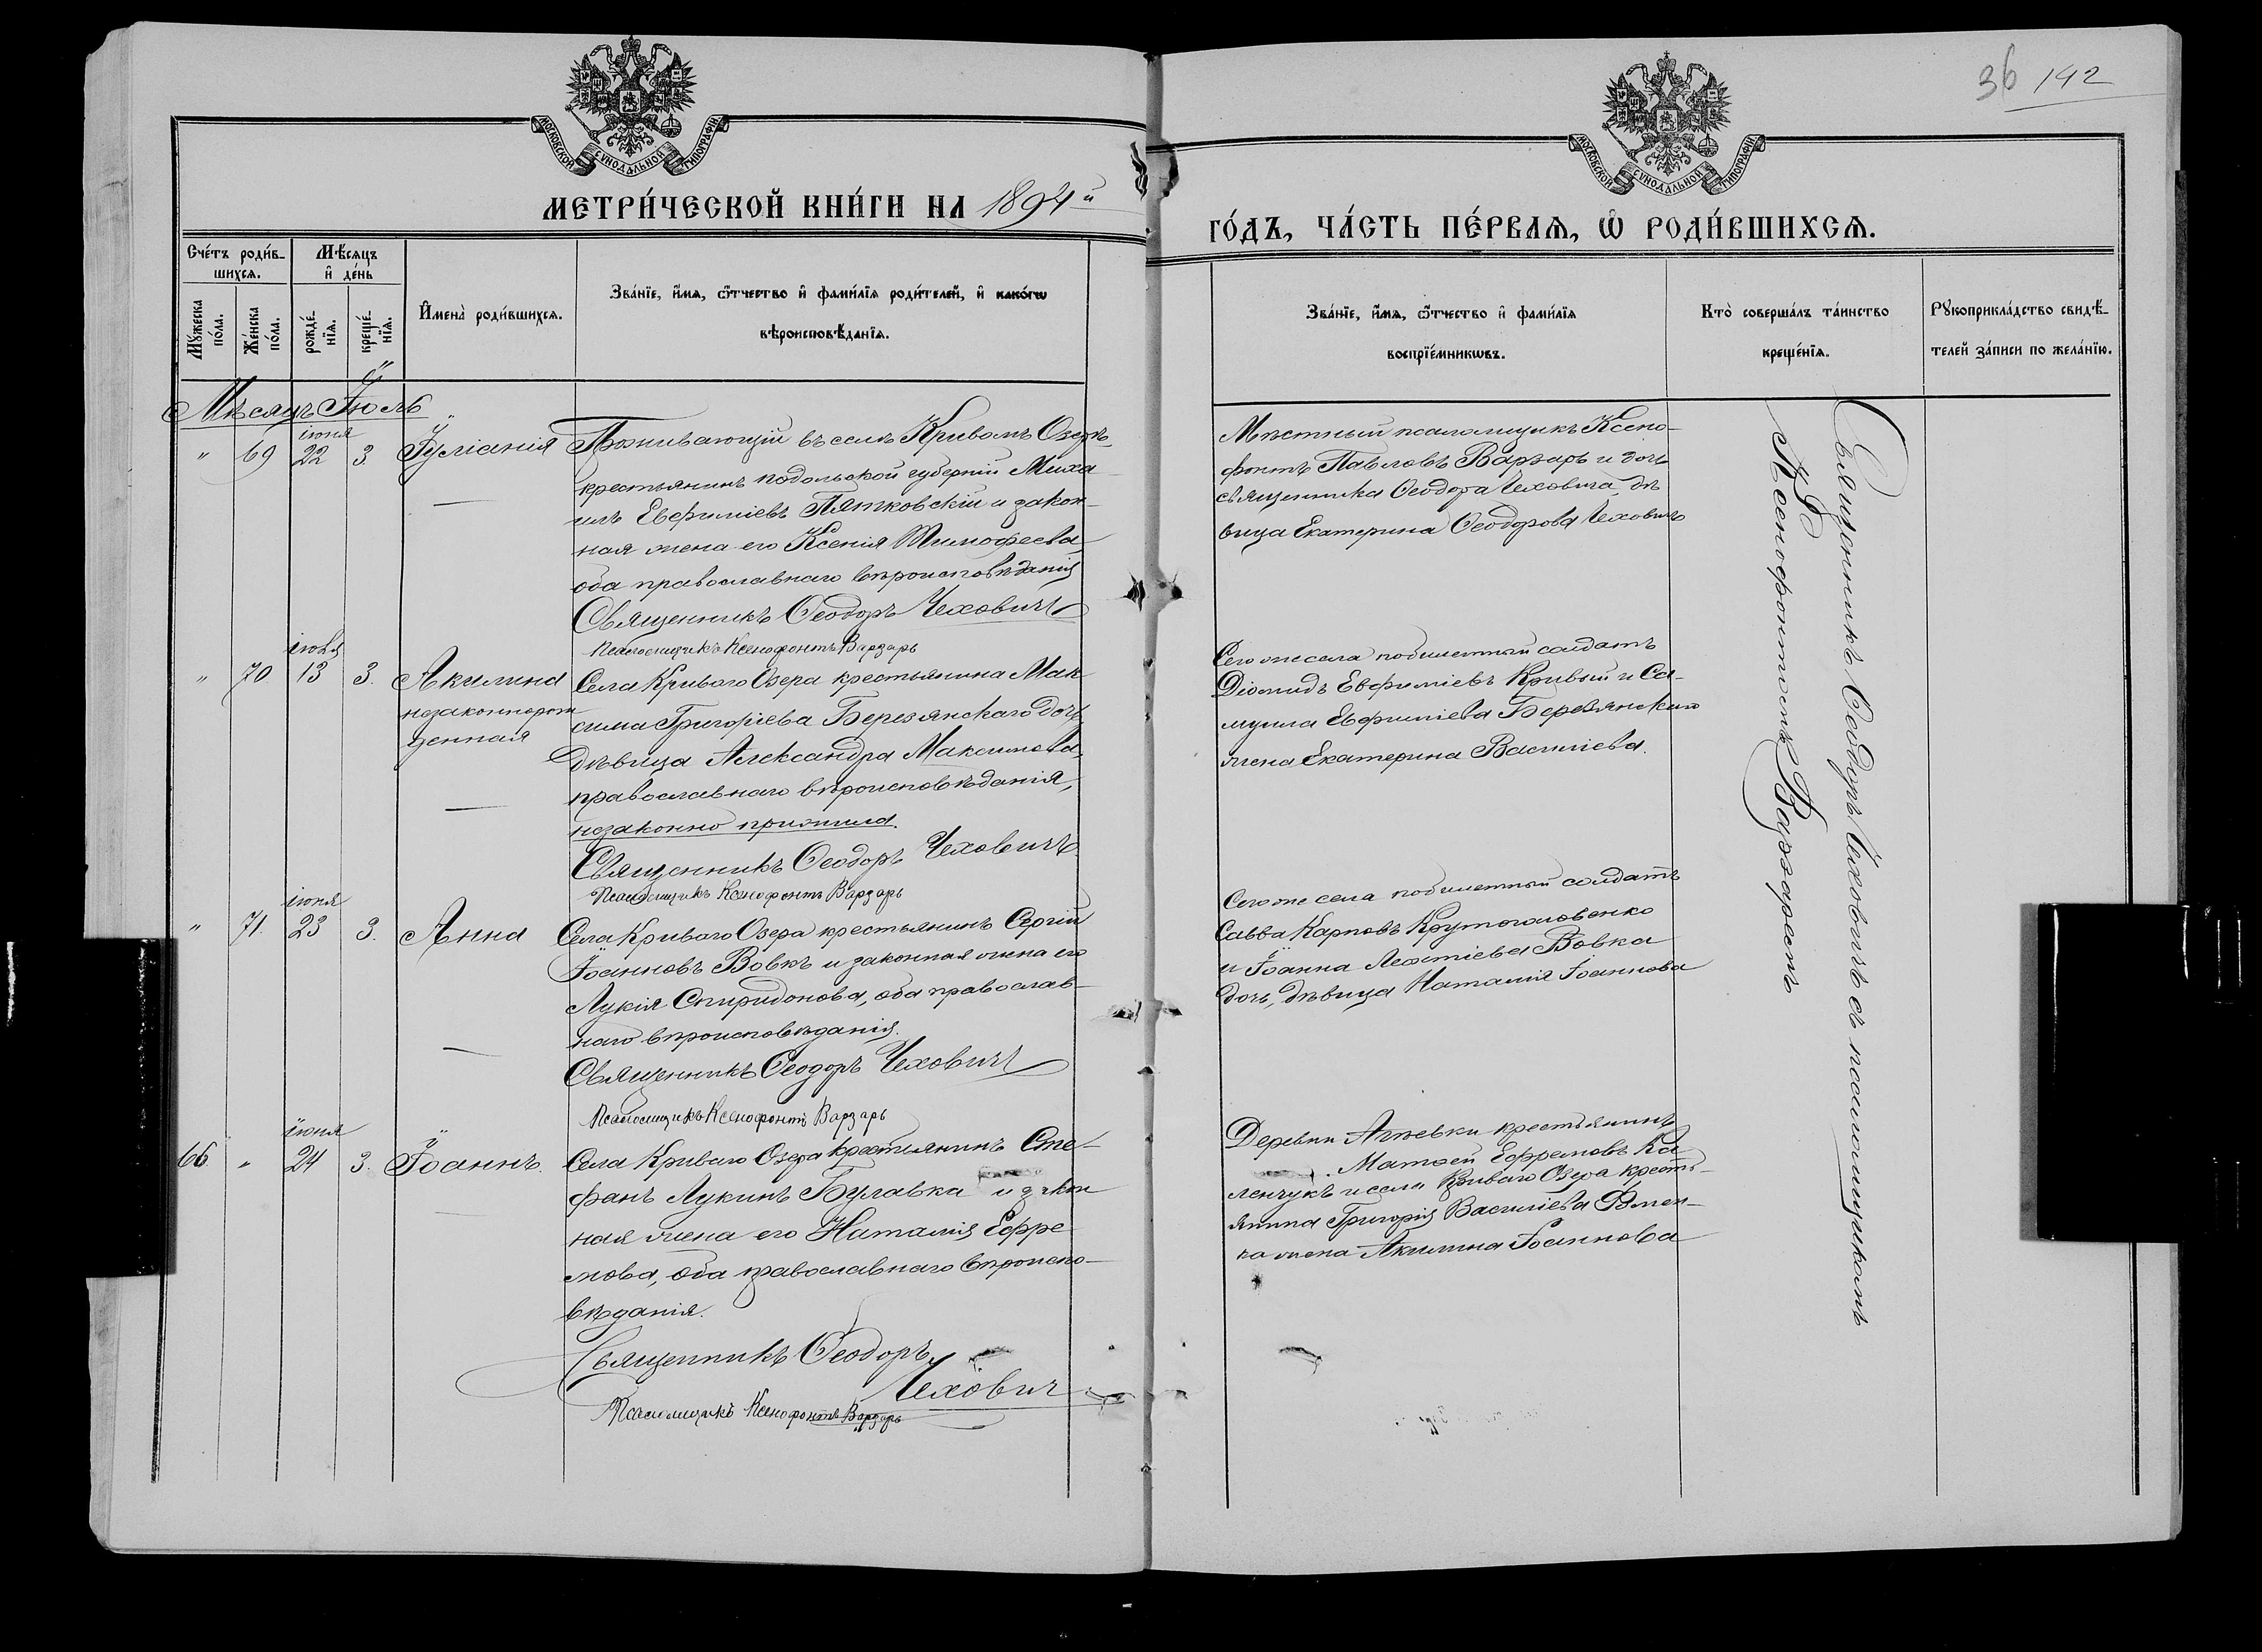 36 142
МОСКОВСКОЙ СУНОДАЛЬНОЙ ТИПОГРАФІИ
МЕТРИ́ЧЕСКОЙ КНИ́ГИ НА 1894й
МОСКОВСКОЙ СУНОДАЛЬНОЙ ТИПОГРАФІИ
ГО́ДЪ, ЧА́СТЬ ПЕ́РВАѦ, Ѡ҆ РОДИ́ВШИХСѦ.
Сче́тъ роди́в-
шихсѧ.
Мѣ́сѧцъ
и҆ де́нь
Мꙋ́жеска
по́ла.
Же́нска
по́ла.
рожде́-
нїѧ.
креще́-
нїѧ.
И҆мена̀ роди́вшихсѧ.
Зва́нїе, и҆́мѧ, ѻ҆́тчество и҆ фами́лїѧ роди́телей, и҆ како́гѡ
вѣроисповѣ́данїѧ.
Зва́нїе, и҆́мѧ, ѻ҆́тчество и҆ фами́лїѧ
воспрїе́мникѡвъ.
Кто̀ соверша́лъ та́инство
креще́нїѧ.
Рꙋкоприкла́дство свидѣ́-
телей за́писи по жела́нїю.
Мѣсяцъ Іюль
іюня
" 69 22 3. Іуліанія
Проживающій въ селѣ Кривомъ Озерѣ
крестьянинъ подольской губерніи Миха
илъ Евфиміевъ Пятковскій и закон-
ная жена его Ксенія Тимофеева,
оба православнаго вѣроисповѣданія
Священникъ Ѳеодоръ Чеховичъ
Псаломщикъ Ксенофонтъ Варзарь
Мѣстный псаломщикъ Ксено-
фонтъ Павловъ Варзарь и дочь
священника Ѳеодора Чеховича, дѣ
вица Екатерина Ѳеодорова Чеховичъ
" 70 13 3. Акилина
незаконнорож
денная
Села Криваго Озера крестьянина Мак
сима Григоріева Березянскаго дочь
дѣвица Александра Максимова,
православнаго вѣроисповѣданія,
незаконно прижила.
Священникъ Ѳеодоръ Чеховичъ
Псаломщикъ Ксенофонтъ Варзарь
Сего же села побилетный солдатъ
Діомидъ Евфиміевъ Кривый и Са-
муила Евфиміева Березянскаго
жена Екатерина Василіева.
іюня
" 71. 23 3. Анна
Села Криваго Озера крестьянинъ Сергій
Іоанновъ Вовкъ и законная жена его
Лукія Спиридонова, оба православ-
наго вѣроисповѣданія.
Священникъ Ѳеодоръ Чеховичъ
Псаломщикъ Ксенофонтъ Варзарь
Сего же села побилетный солдатъ
Савва Карповъ Крутоголовенко
и Іоанна Леонтіева Вовка
дочь, дѣвица Наталія Іоаннова
іюня
66. " 24 3. Іоаннъ.
Села Криваго Озера крестьянинъ Сте-
фанъ Лукинъ Булавка и закон
ная жена его Наталія Ефре
мова, оба православнаго вѣроиспо-
вѣданія.
Священникъ Ѳеодоръ
Чеховичъ
Псаломщикъ Ксенофонтъ Варзарь
Деревни крестьянинъ
Матѳей Ефремовъ Ка
ленчукъ и села Криваго Озера кресть-
янина Григорія Василіева
жена Акилина Іоаннова
Священникъ Ѳеодоръ Чеховичъ съ псаломщикомъ
Ксенофонтомъ Варзаремъ